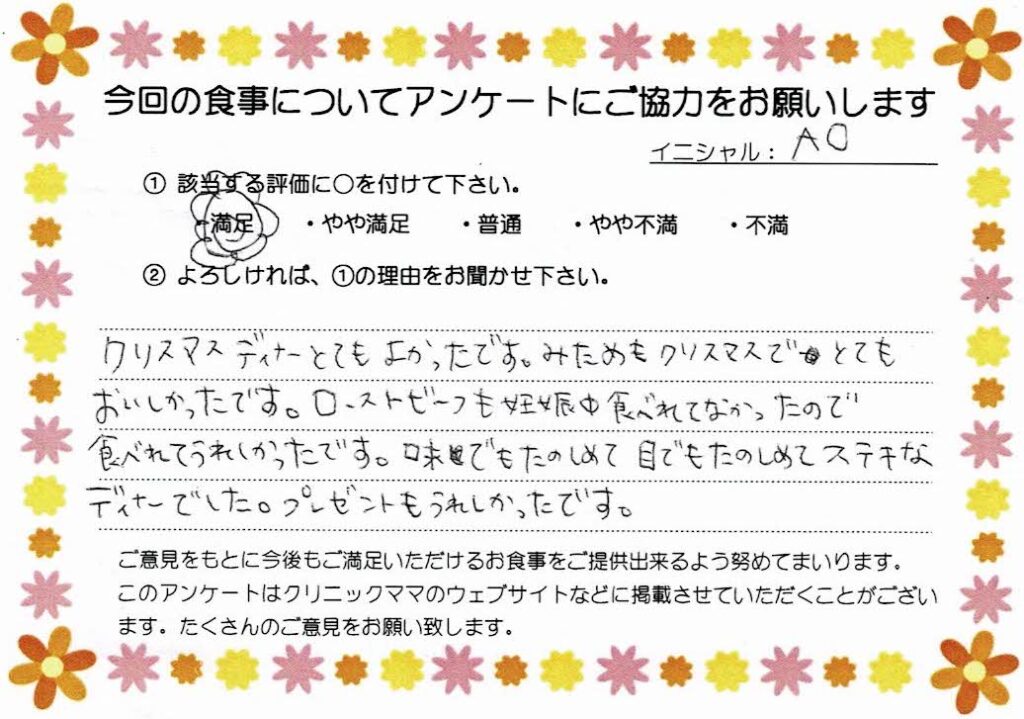 今回の食事についてアンケートにご協力をお願いします
イニシャル： AO
① 該当する評価に〇を付けて下さい。
・満足 ・やや満足 ・普通 ・やや不満 ・不満
② よろしければ、①の理由をお聞かせ下さい。
クリスマスディナーとてもよかったです。みためもクリスマスで とても
おいしかったです。ローストビーフも妊娠中食べれてなかったので
食べれてうれしかったです。味でもたのしめて目でもたのしめてステキな
ディナーでした。プレゼントもうれしかったです。
ご意見をもとに今後もご満足いただけるお食事をご提供出来るよう努めてまいります。
このアンケートはクリニックママのウェブサイトなどに掲載させていただくことがござい
ます。たくさんのご意見をお願い致します。